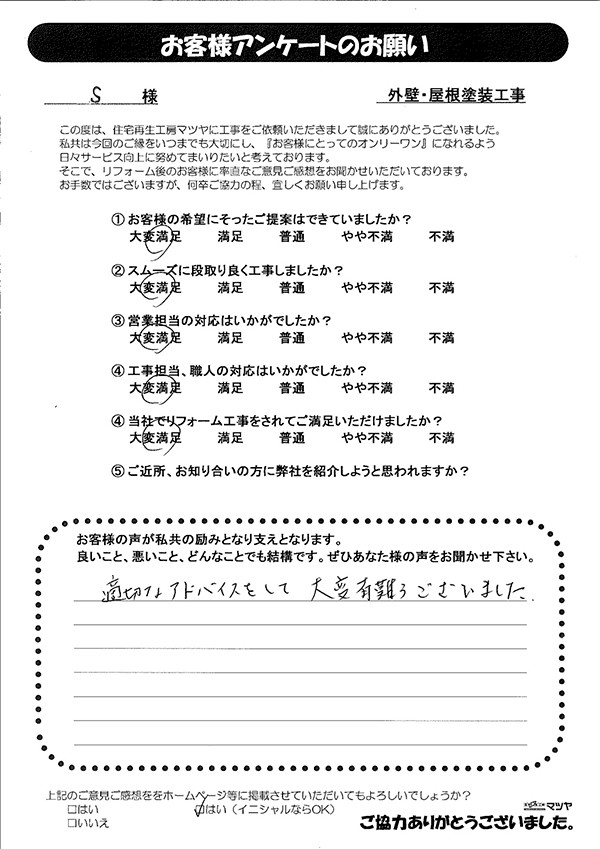 お客様アンケートのお願い
S 様 外壁・屋根塗装工事
この度は、住宅再生工房マツヤに工事をご依頼いただきまして誠にありがとうございました。
私共は今回のご縁をいつまでも大切にし、『お客様にとってのオンリーワン』になれるよう
日々サービス向上に努めてまいりたいと考えております。
そこで、リフォーム後のお客様に率直なご意見ご感想をお聞かせいただいております。
お手数ではございますが、何卒ご協力の程、宜しくお願い申し上げます。
① お客様の希望にそったご提案はできていましたか？
大変満足 満足 普通 やや不満 不満
② スムーズに段取り良く工事しましたか？
大変満足 満足 普通 やや不満 不満
③ 営業担当の対応はいかがでしたか？
大変満足 満足 普通 やや不満 不満
④ 工事担当、職人の対応はいかがでしたか？
大変満足 満足 普通 やや不満 不満
④ 当社でリフォーム工事をされてご満足いただけましたか？
大変満足 満足 普通 やや不満 不満
⑤ ご近所、お知り合いの方に弊社を紹介しようと思われますか？
お客様の声が私共の励みとなり支えとなります。
良いこと、悪いこと、どんなことでも結構です。ぜひあなた様の声をお聞かせ下さい。
適切なアドバイスをして 大変有難うございました.
上記のご意見ご感想ををホームページ等に掲載させていただいてもよろしいでしょうか？
□はい ☑はい（イニシャルならOK）
□いいえ
マツヤ
ご協力ありがとうございました。